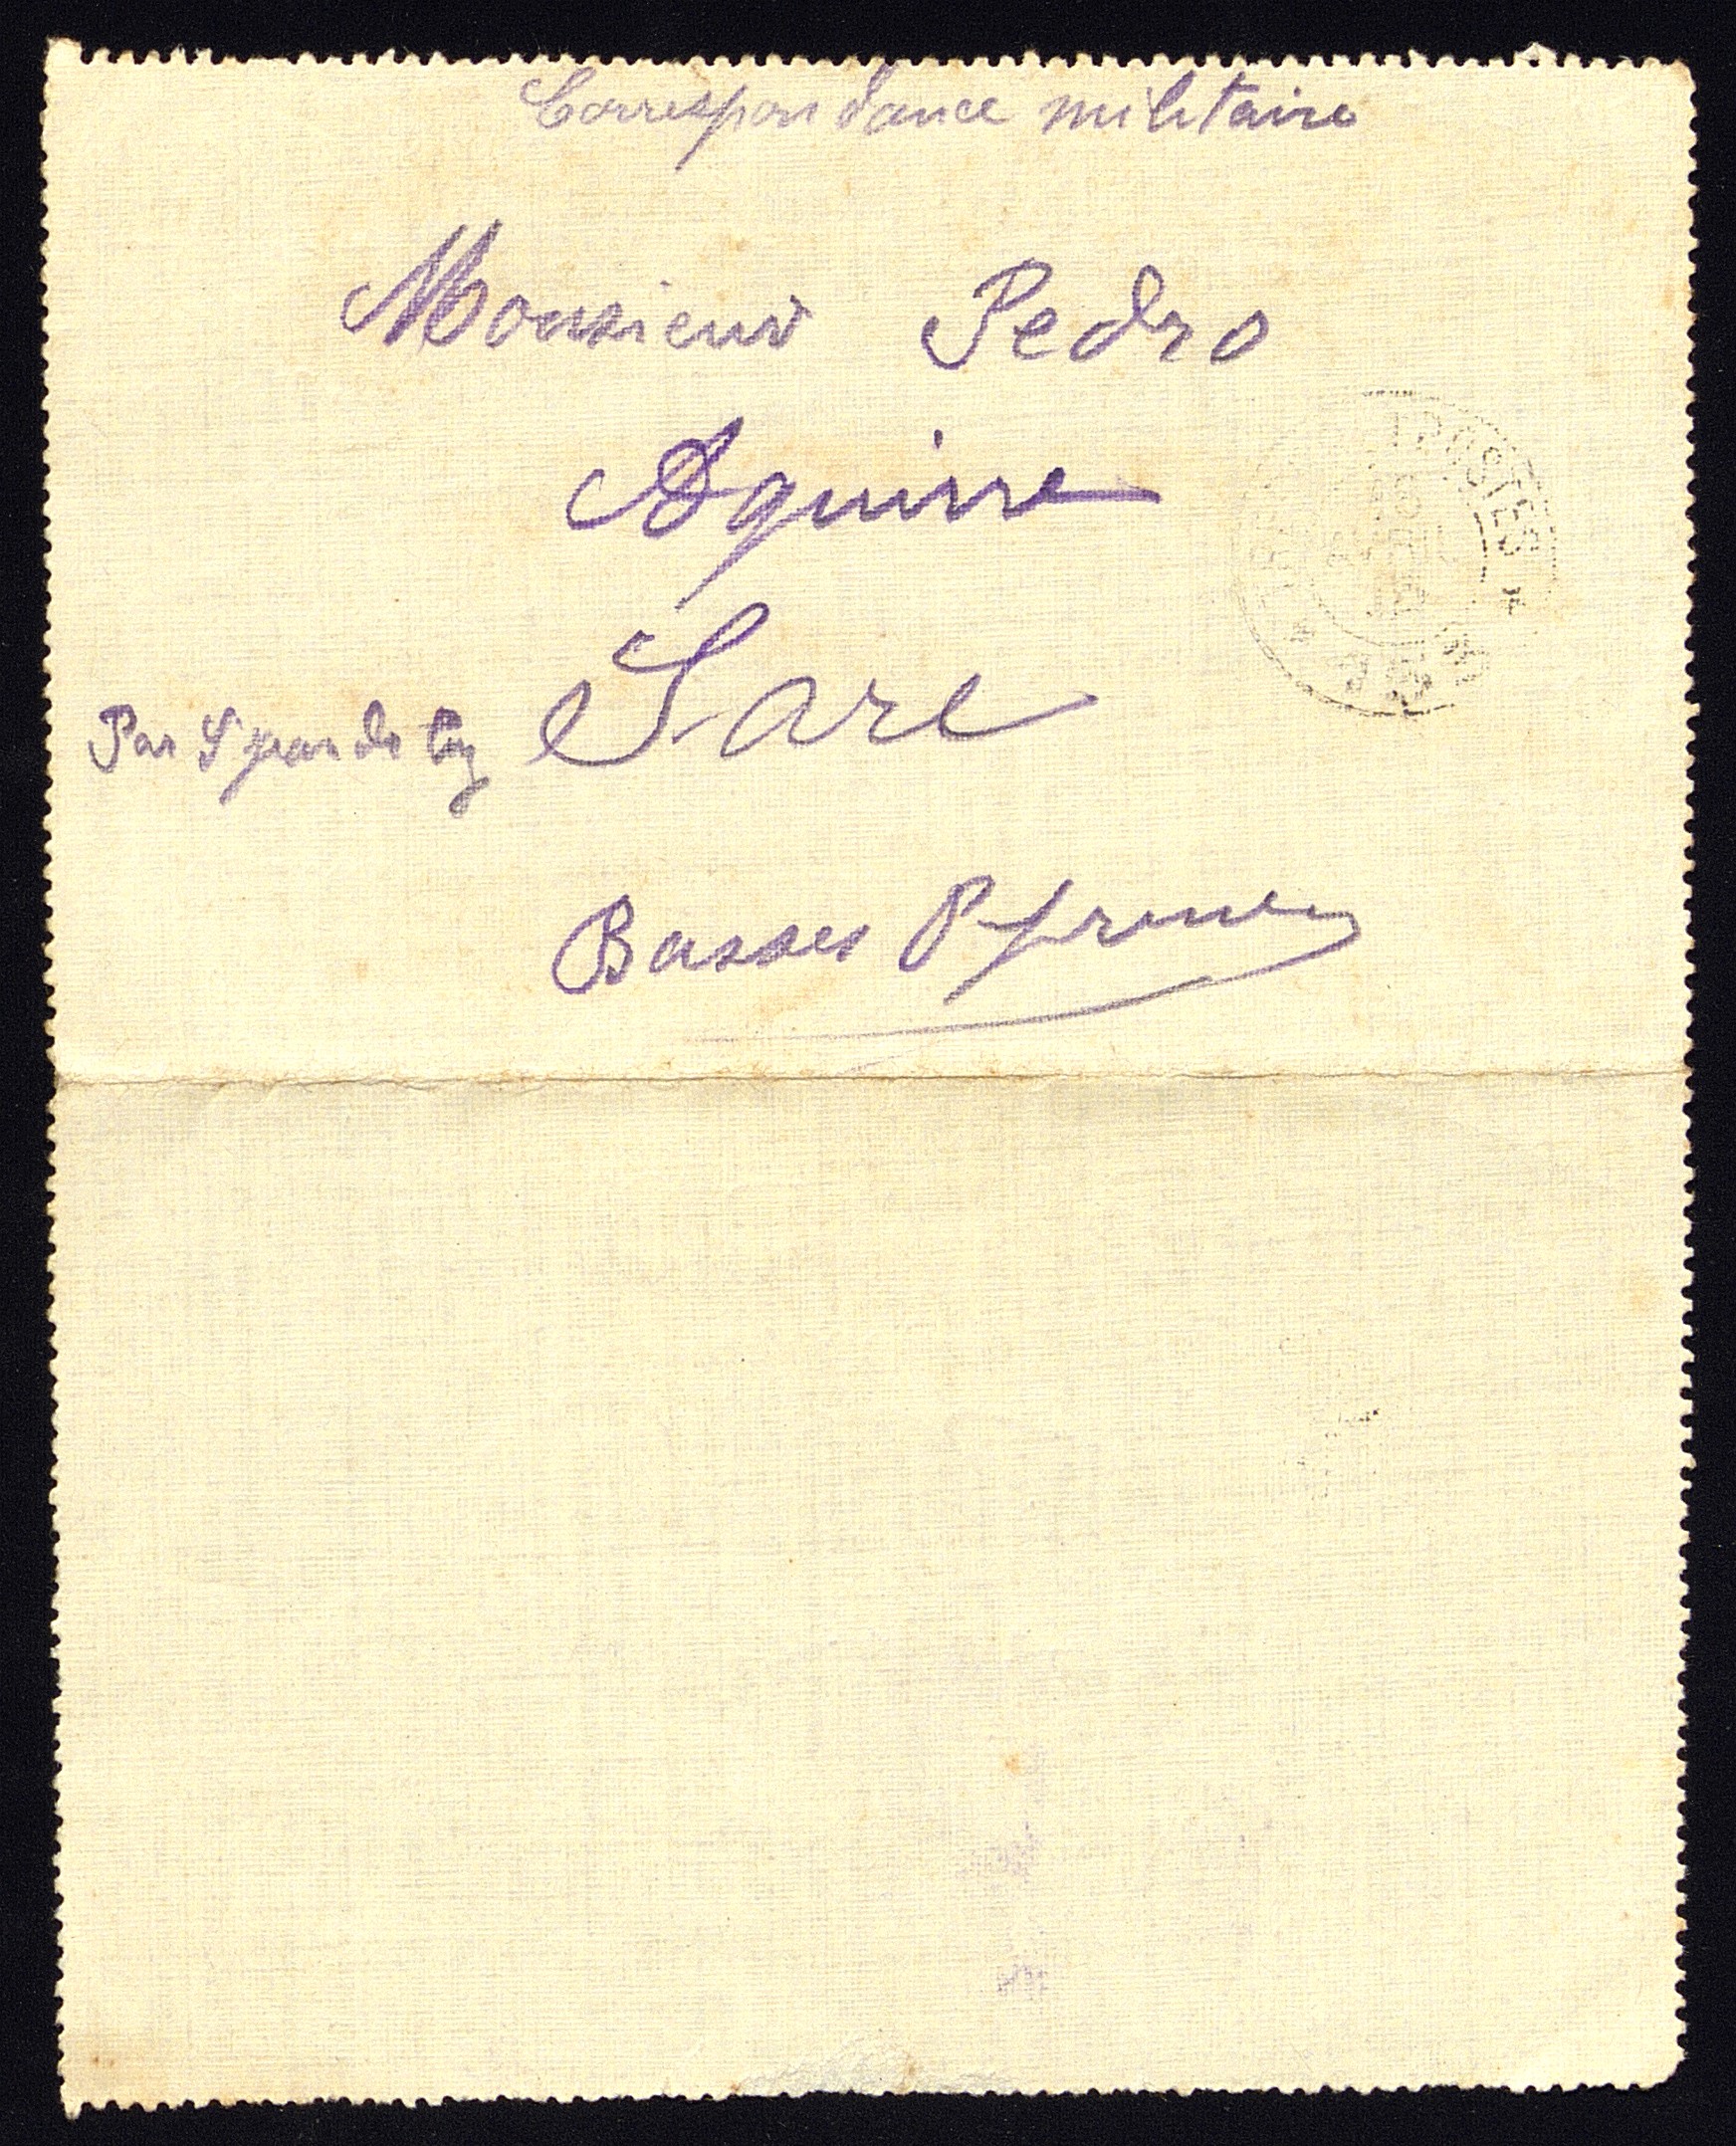 Correspondance militaire
Monsieur Pedro
Aguirre
Sare
Par S Jean de Luz
Basses Pyrenees
POSTES
AVRIL